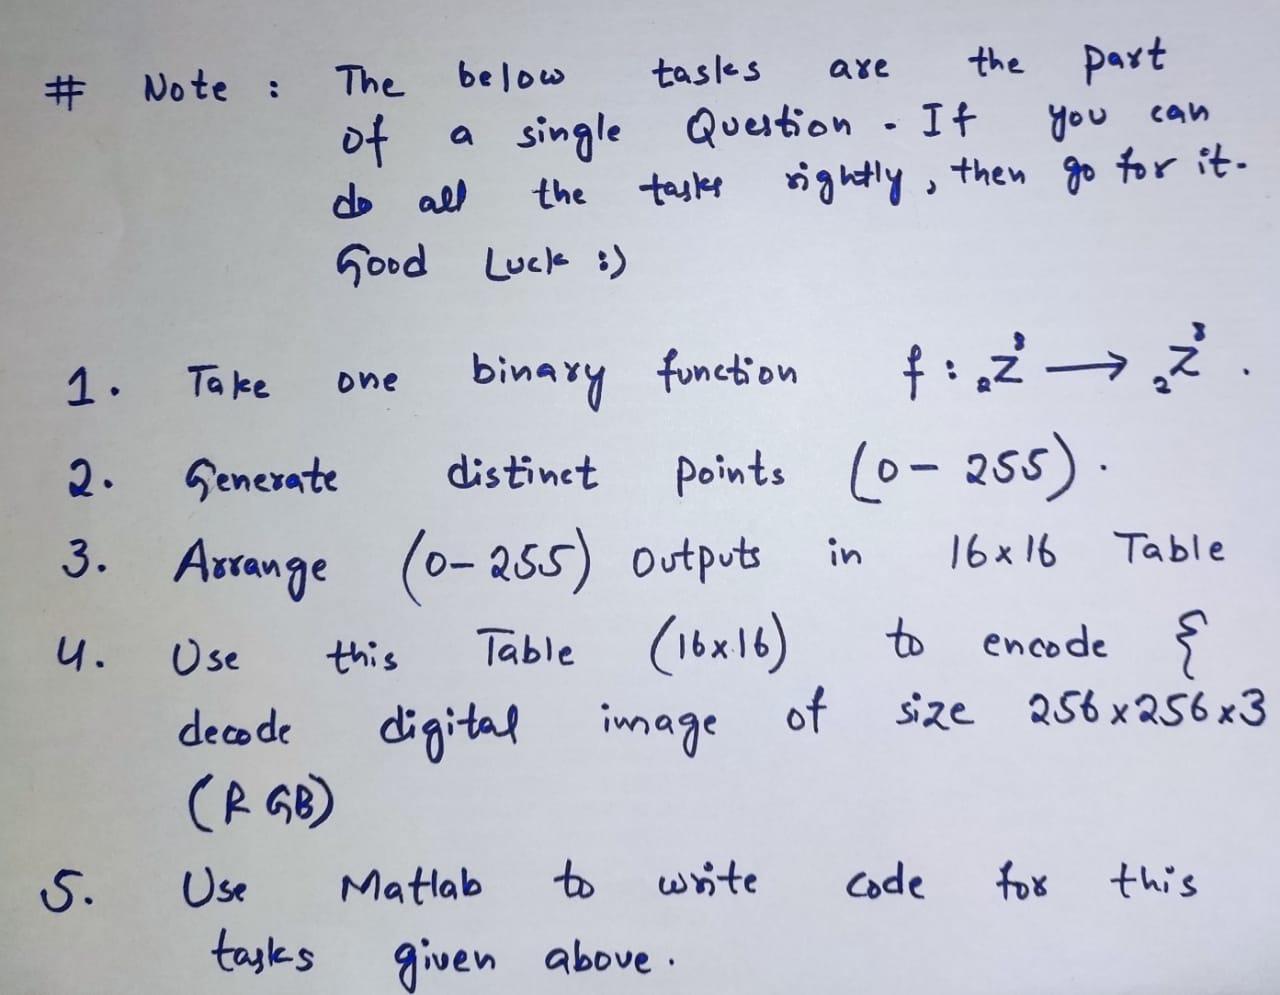 # Note : The below tasks are the part
of a single Question. If you can
do all the tasks rightly, then go for it.
Good Luck :)
1. Take one binary function f : ₂Z⁸ → ₂Z⁸.
2. Generate distinct points (0-255).
3. Arrange (0-255) outputs in 16x16 Table
4. Use this Table (16x16) to encode {
decode digital image of size 256x256x3
(RGB)
5. Use Matlab to write code for this
tasks given above.